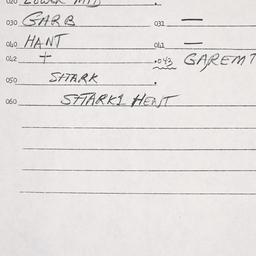 020 LOWER MID .
030 GARB 031 —
040 HANT 041 —
042 + .043 GAREMT
050 SHARK .
060 SHARK1 HENT